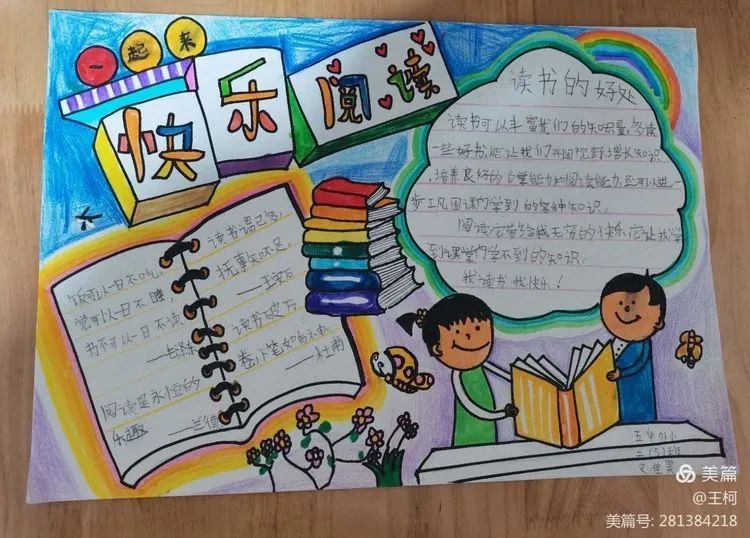 一起来
快乐阅读
读书的好处
读书可以丰富我们的知识量,多读
一些好书,能让我们开阔视野,增长知识
,培养良好的自学能力和阅读能力,还可以进一
步巩固课内学到的各种知识。
阅读它带给我无穷的快乐,它让我学
到课堂内学不到的知识。
我读书 我快乐!
饭可以一日不吃,
觉可以一日不睡,
书不可以一日不读
——毛泽东
阅读是永恒的
乐趣
读书谓已多,
抚事知不足。
——王安石
读书破万
卷,下笔如有神
——杜甫
二(5)班
美篇
@王柯
美篇号: 281384218